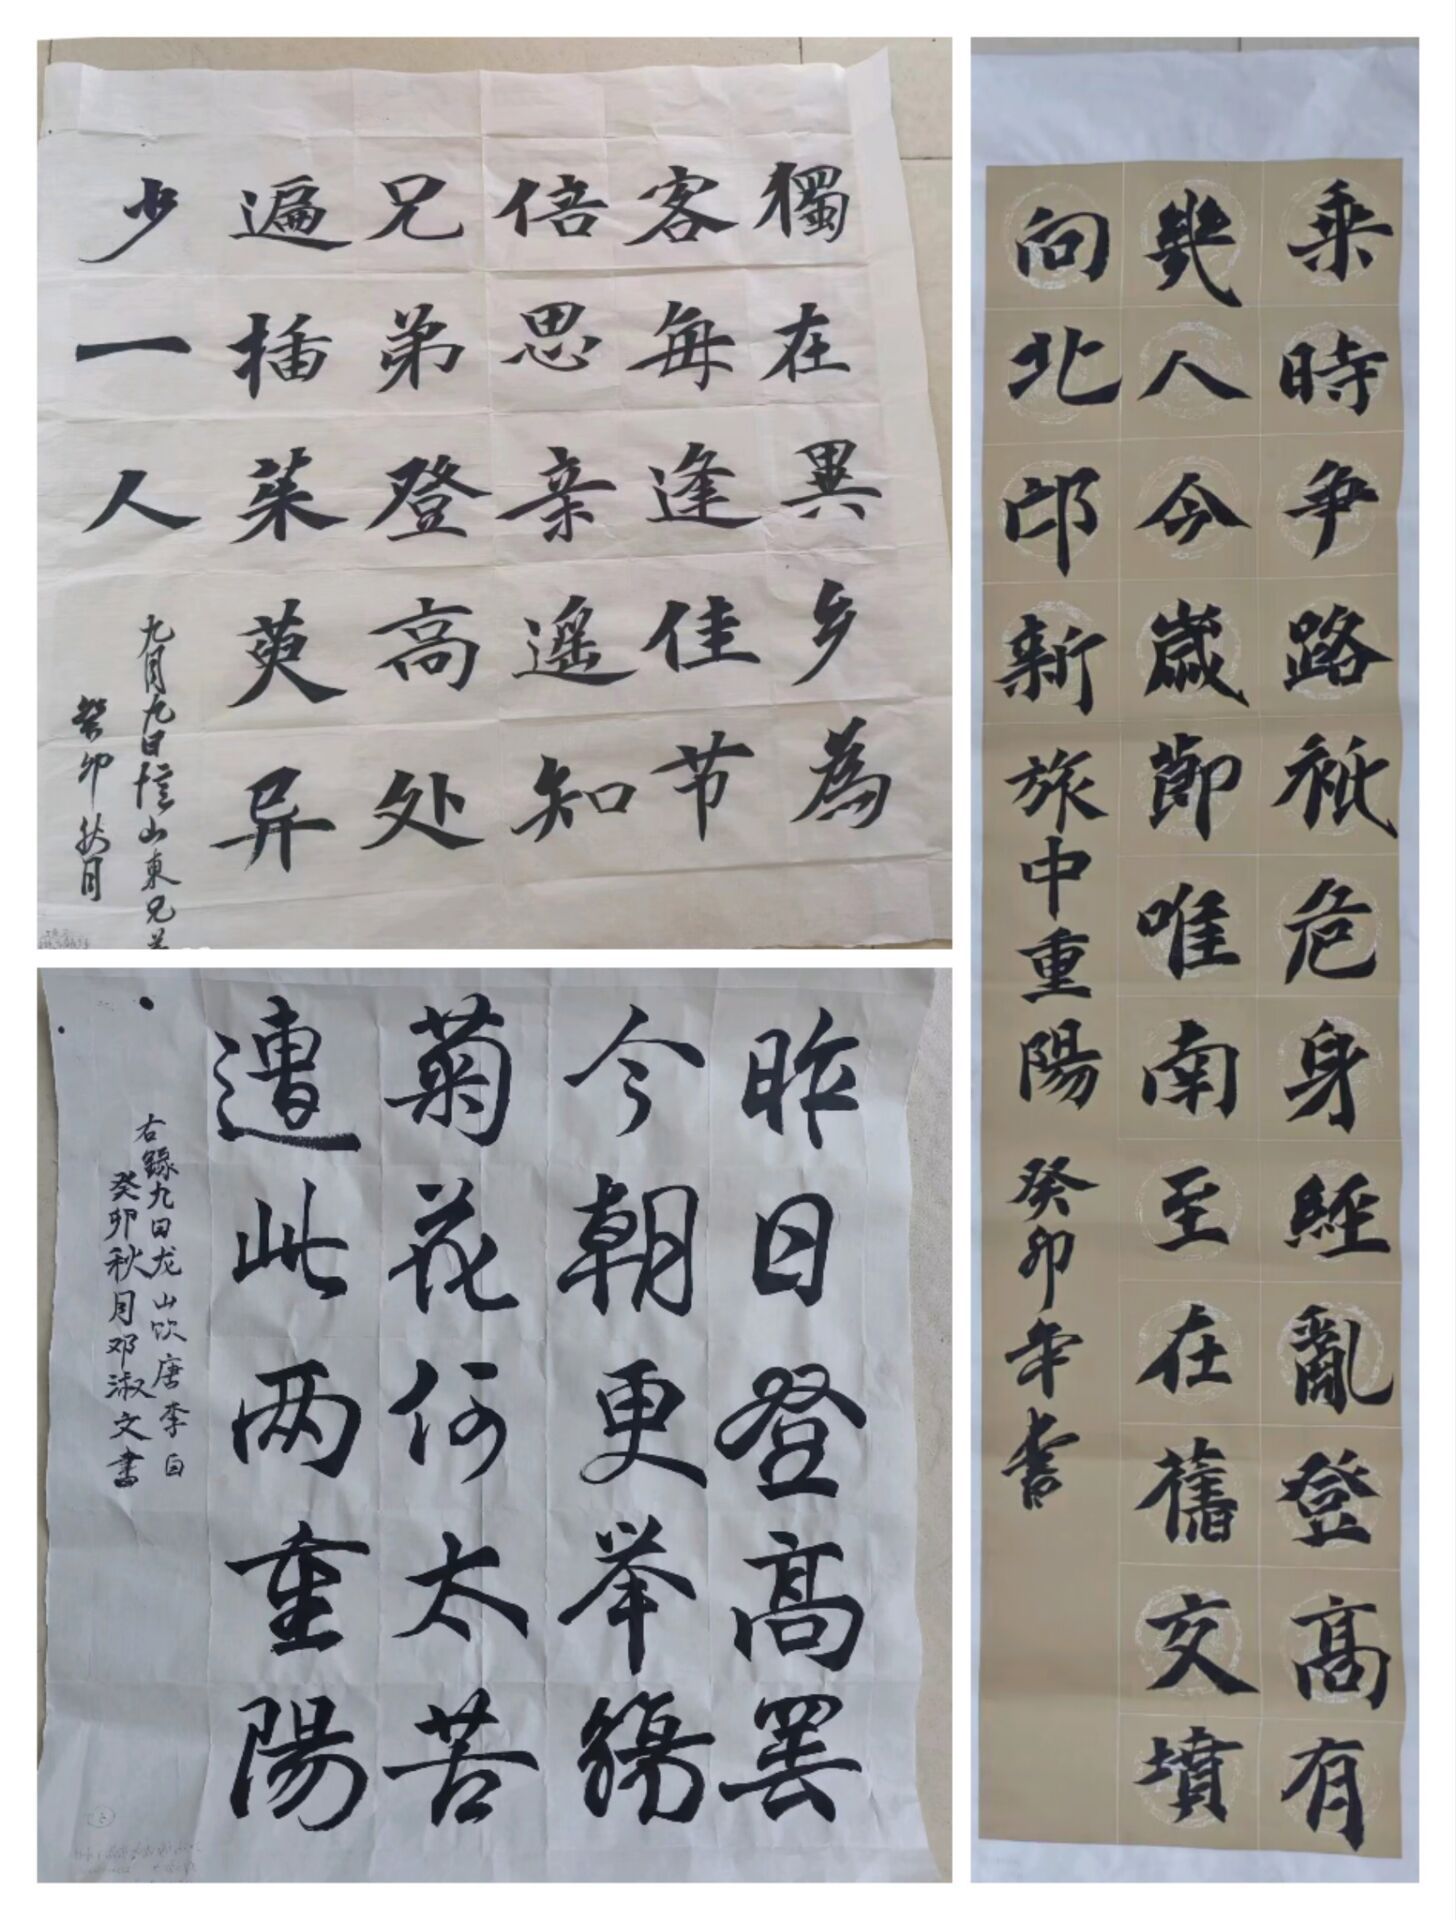 獨在異乡為
客每逢佳节
倍思亲遥知
兄弟登高处
遍插茱萸异
少一人
九月九日憶山東兄
癸卯秋月
昨日登高罢
今朝更举觴
菊花何太苦
遭此两重陽
右録九日龙山饮唐李白
癸卯秋月邓淑文書
乘時争路祇危身經亂登高有
幾人今歲節唯南至在舊交墳
向北邙新旅中重陽 癸卯年書